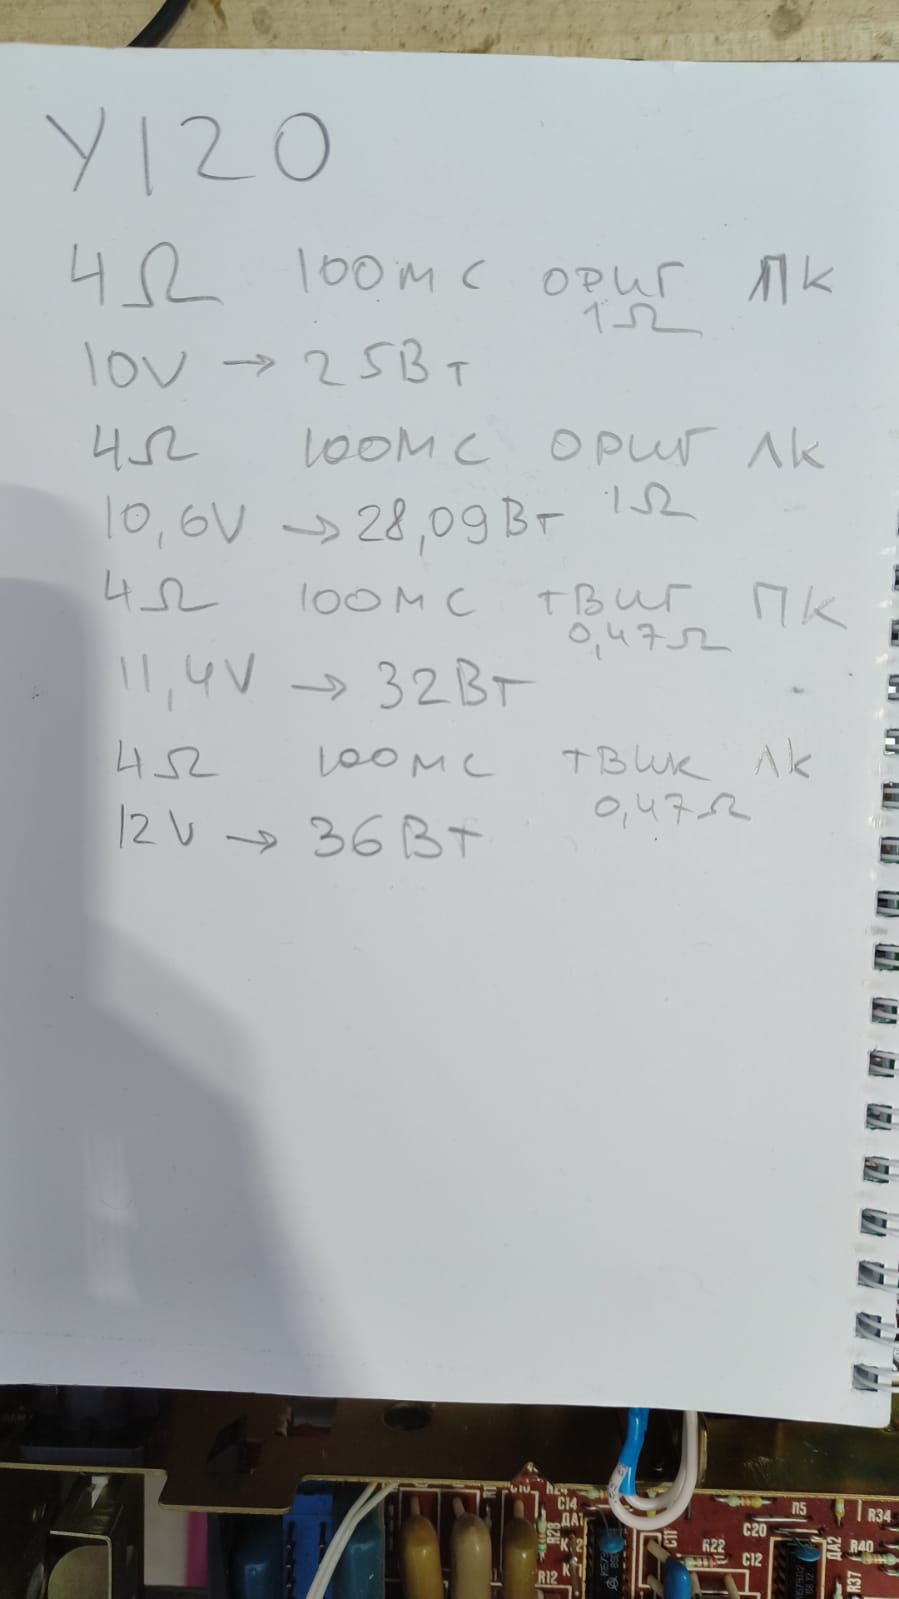 У120
4Ω 100мс ориг ПК
1Ω
10V → 25Вт
4Ω 100мс ориг ЛК
1Ω
10,6V → 28,09Вт
4Ω 100мс твиг ПК
0,47Ω
11,4V → 32Вт
4Ω 100мс твик ЛК
0,47Ω
12V → 36Вт
C14
ДА1
R28
R12
C11
R22
C12
C20
П5
ДА2
R34
R40
R37